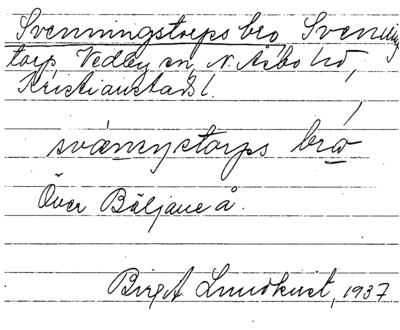 Svenningstorps bro, Svennings-
torp, Vedby sn, N. Åsbo hd,
Kristianstads l.
bro
Över Bäljane å.
Birgit Lundkvist, 1937